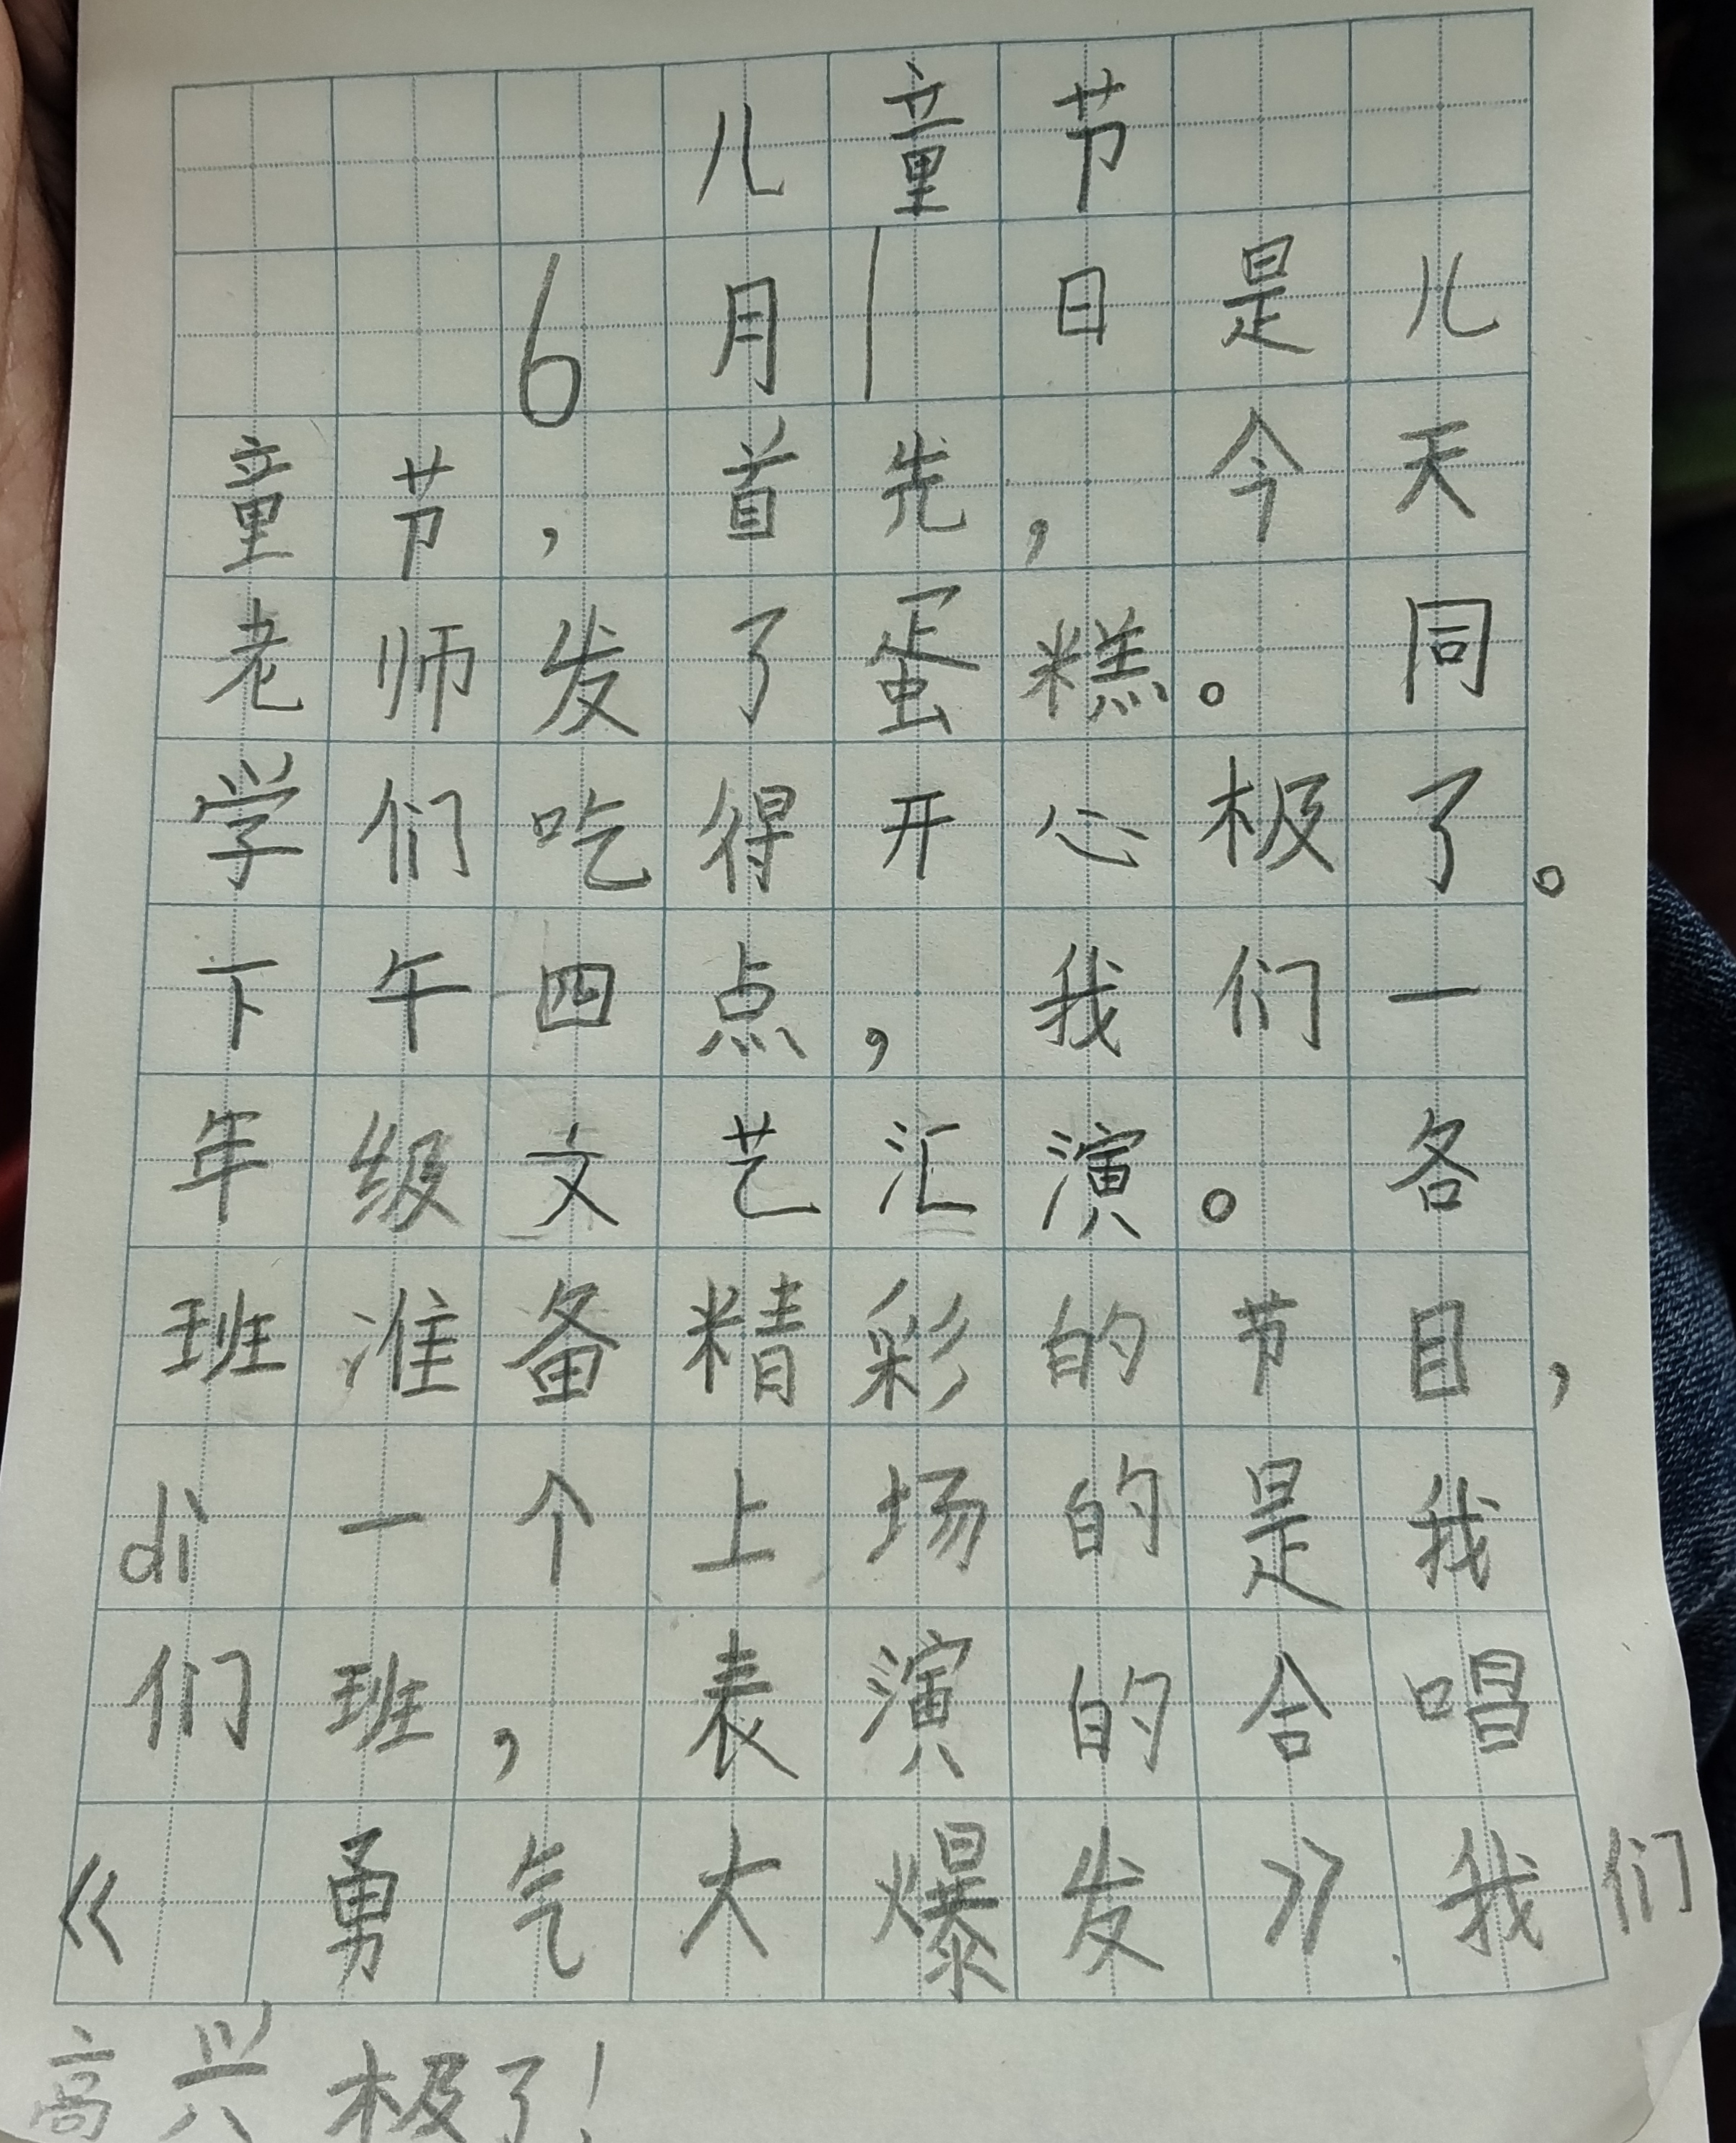 儿童节
6月1日是儿
童节，首先，今天
老师发了蛋糕。同
学们吃得开心极了。
下午四点，我们一
年级文艺汇演。各
班准备精彩的节目，
di一个上场的是我
们班，表演的合唱
《勇气大爆发》我们
高兴极了！